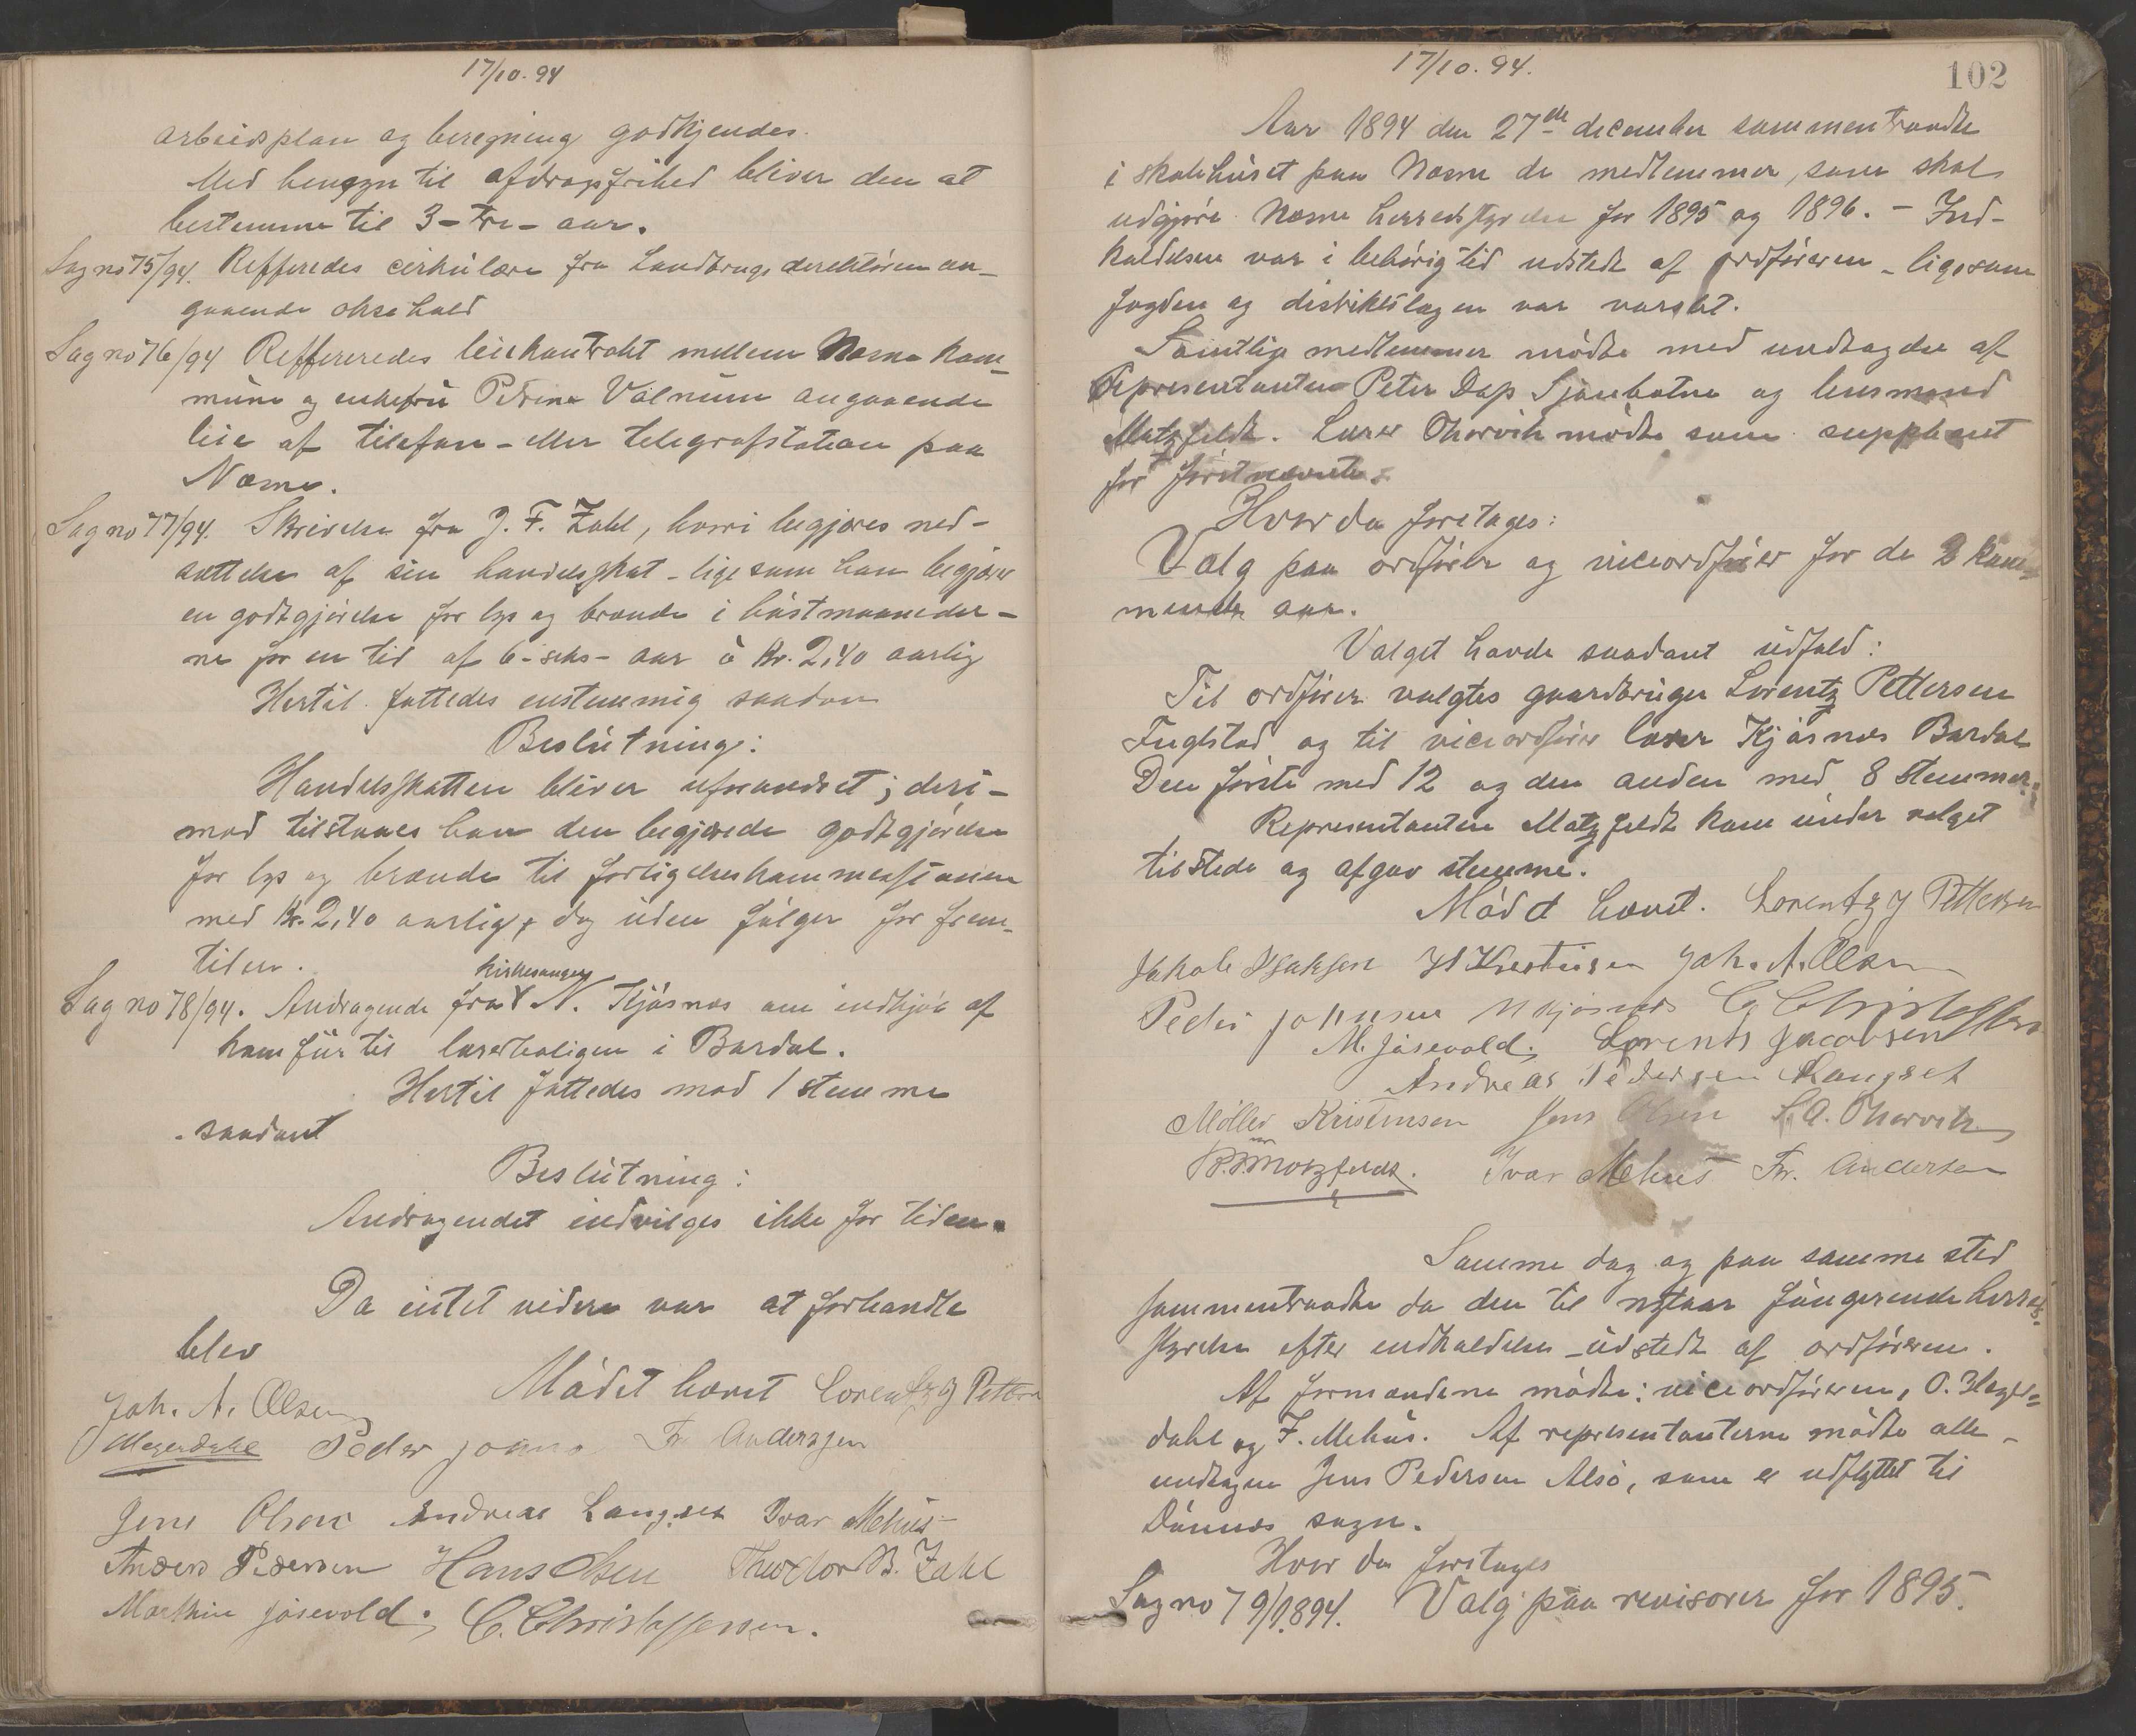 17/10. 94
arbeidsplan og beregning godkjendes.
Med hensyn til afdragsfrihed bliver den at
bestemme til 3-tre- aar.
Sag no 75/94. Refferedes cirkulære fra Landbrugsdirektøren an-
gaaende oksehold
Sag no 76/94 Reffereredes leiekontrakt mellem Næsna kom-
mune og enkefru Petrine Valnum angaaende
leie af telefon- eller telegrafstation paa
Næsna.
Sag no 77/94. Skrivelse fra J. F. Zahl, hvori begjæres ned-
sættelse af sin handelsskat - ligesom han begjærer
en godtgjørelse for lys og brænde i høstmaaneder-
ne for en tid af 6-seks- aar à Kr. 2,40 aarlig
Hertil fattedes enstemmig saadan
Beslutning:
Handelsskatten bliver uforandret; deri-
mod tilstaaes han den begjærede godtgjørelse
for lys og brænde til forligelseskommissionen
med Kr. 2,40 aarlig, dog uden følger for frem-
tiden.
kirkesanger
Sag no 78/94. Andragende fra N. Kjøsnæs om indkjøb af
komfur til lærerboligen i Bardal.
Hertil fattedes mod 1 stemme
saadant
Beslutning:
Andragendet indvilges ikke for tiden.
Da intet videre var at forhandle
blev
Mødet hævet Lorentz J Petters
Joh. A. Olsen
Hagendahl Peder Johns Fr Anderssen
Jens Olsen Andreas Langset Ivar Mehus
Anders Pedersen Hans Olsen Theodor B. Zahl
Marthin Jøsevold. C. Christoffersen.
17/10. 94.
102
Aar 1894 den 27de december sammentraadte
i skolehuset paa Næsna de medlemmer, som skal
udgjøre Næsna herredsstyrelse for 1895 og 1896. - Ind-
kaldelsen var i behørig tid udstedt af ordføreren - ligesom
fogden og distriktslægen var varslet.
Samtlige medlemmer mødte med undtagelse af
repræsentanten Peter Dass Sjonbotne og lensmand
Motzfeldt. Lærer Thorvik mødte som suppleant
for førstnævnte.
Hvor da foretages:
Valg paa ordfører og viceordfører for de 2 kom-
mende aar.
Valget havde saadant udfald:
Til ordfører valgtes gaardbruger Lorentz Pettersen
Fuglstad og til viceordfører lærer Kjøsnæs Bardal
Den første med 12 og den anden med 8 stemmer.
Repræsentanten Motzfeldt kom under valget
tilstede og afgav stemme.
Mødet hævet. Lorentz J Pettersen
Jakob Isaksen H Kristensen Joh. A. Olsen
Peder Johnsen N Kjøsnæs C. Christoffersen
M. Jøsevold. Lorents Jacobsen
Andreas Pedersen Langset
Møller Kristensen Jens Olsen S. A. Thorvik
Motzfeldt. Ivar Mehus Fr. Andersen
Samme dag og paa samme sted
sammentraadte da den til nytaar fungerende herreds-
styrelse efter indkaldelse udstedt af ordføreren.
Af formændene mødte: viceordføreren, O. Hagen=
dahl og I. Mehus. Af repræsentanterne mødte alle -
undtagen Jens Pedersen Alsø, som er udflyttet til
Dønnæs sogn.
Hvor da foretages
Sag no 79/1894. Valg paa revisorer for 1895.